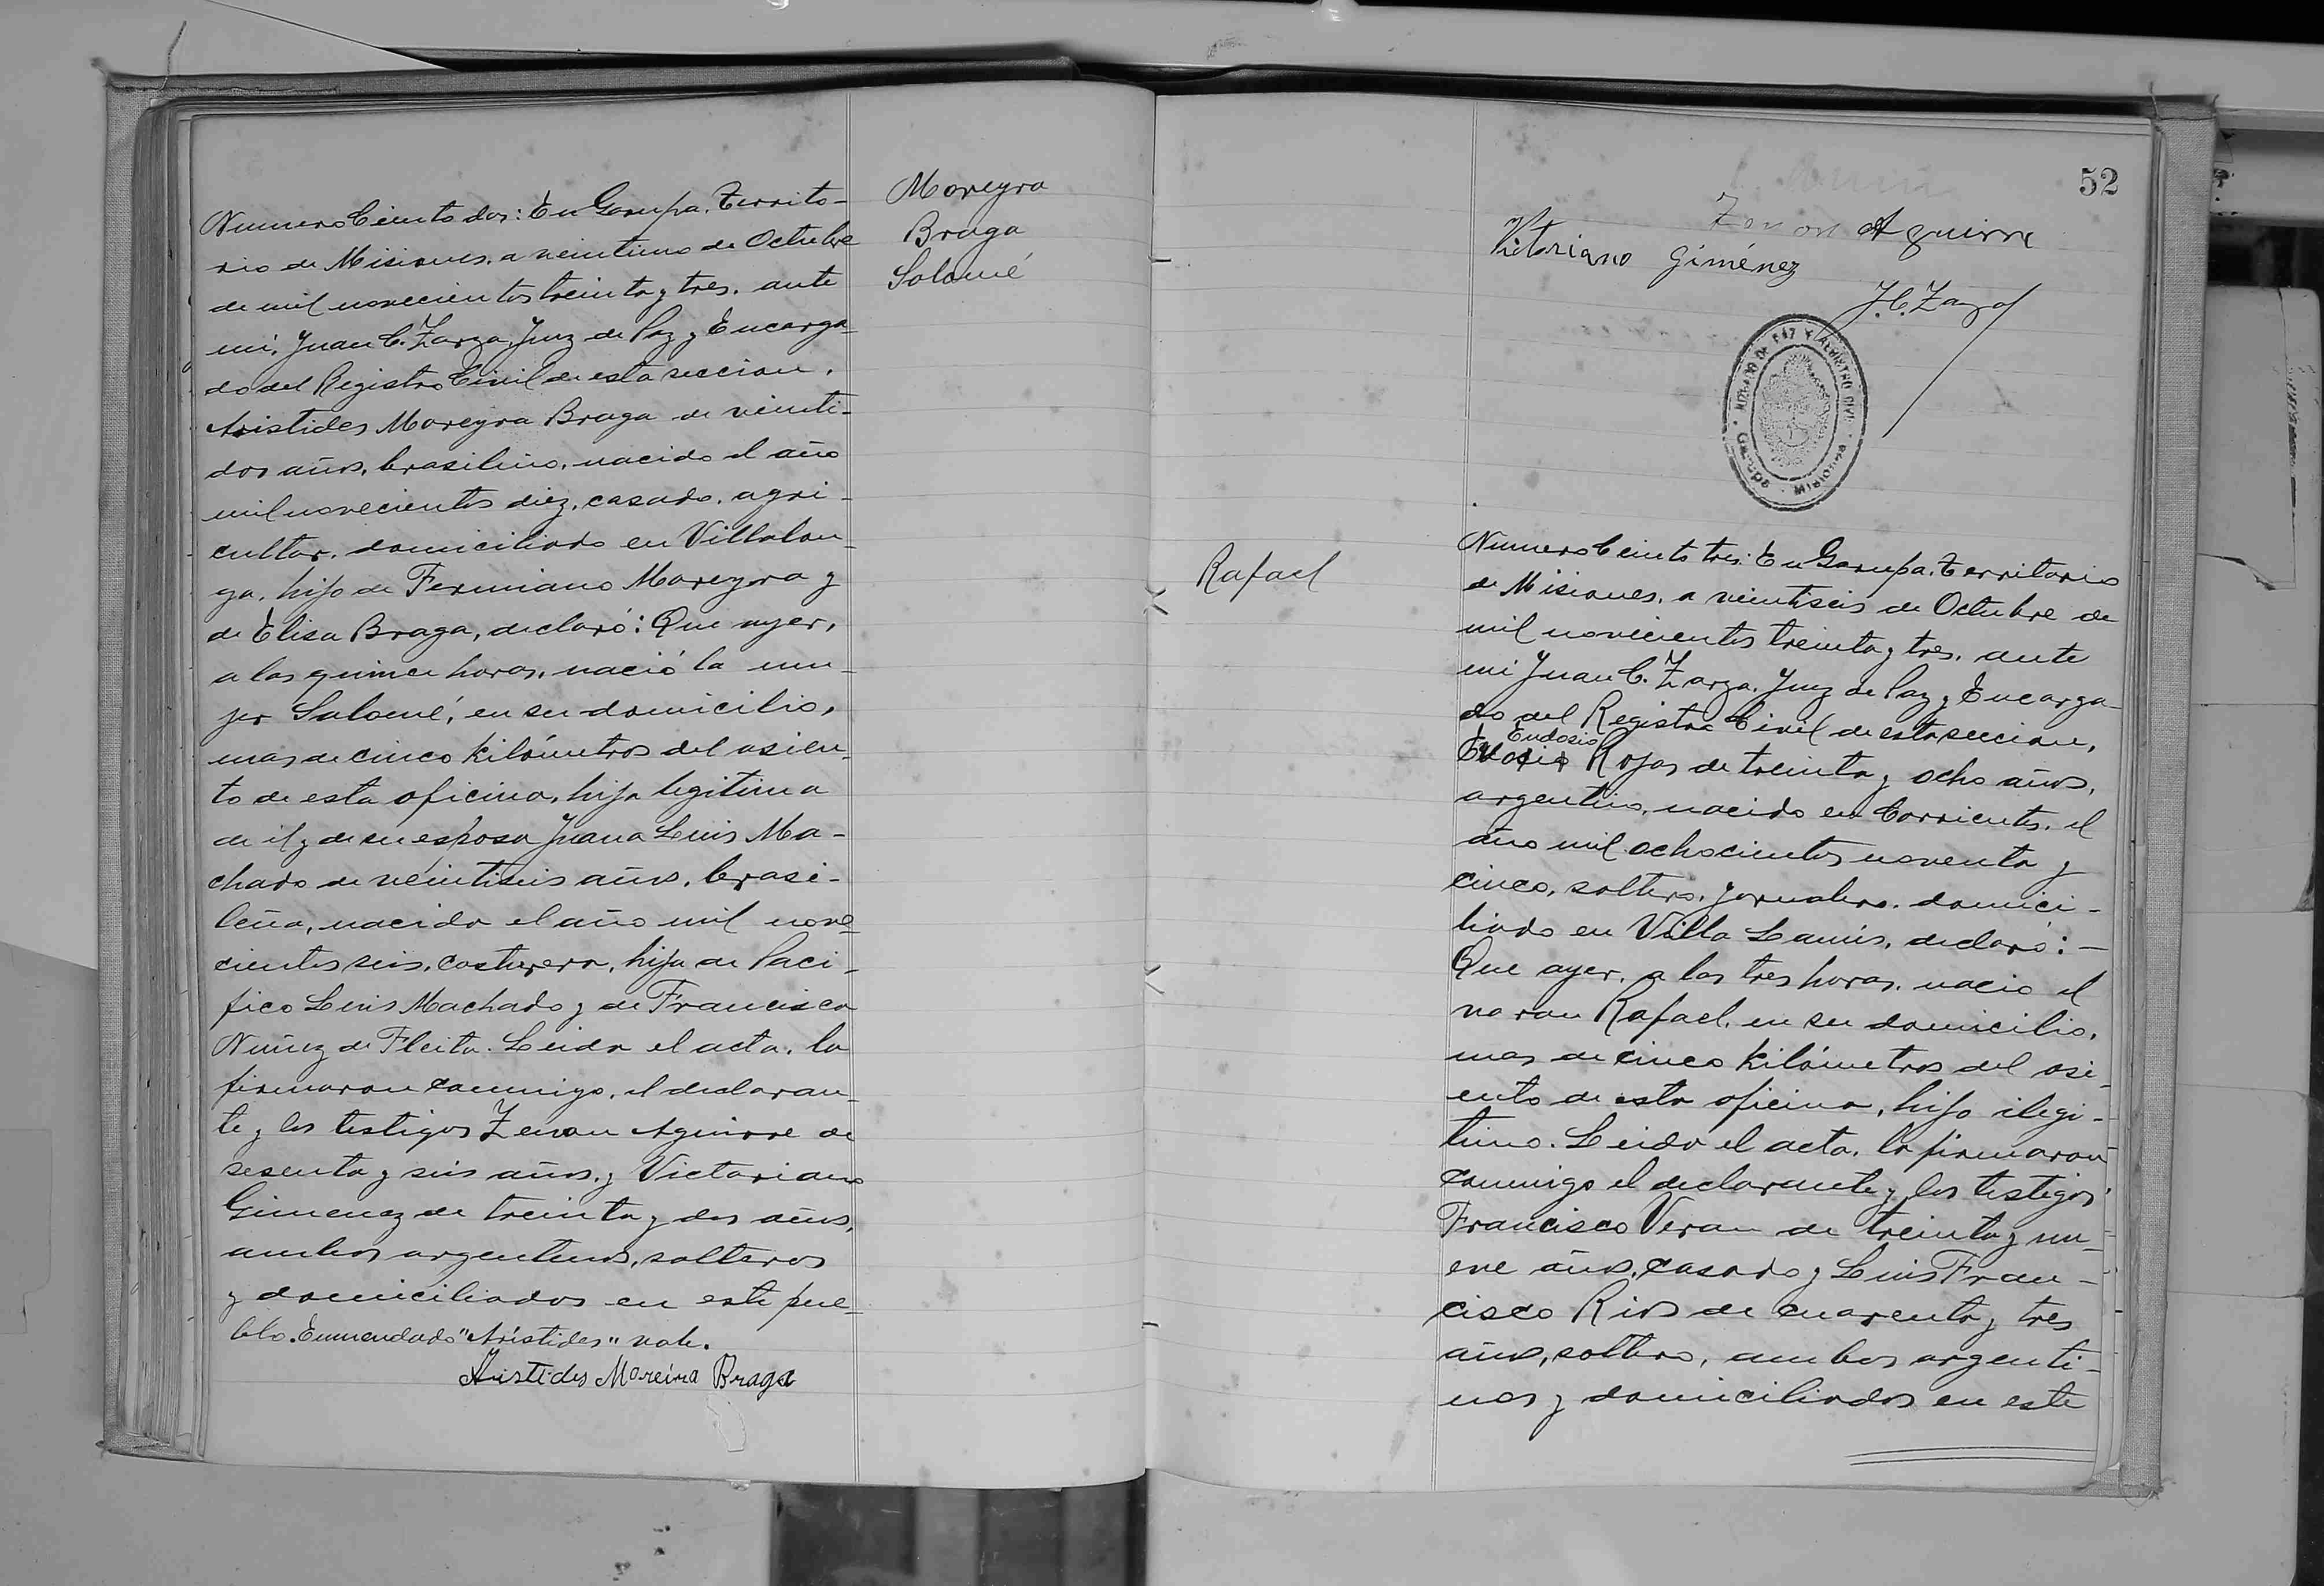 Numero Ciento dos: En Garupa, Territo-
rio de Misiones, a veintiuno de Octubre
de mil novecientos treinta y tres, ante
mi, Juan C. Zarza, Juez de Paz y Encarga-
do del Registro Civil de esta seccion,
Aristides Moreyra Braga de veinti-
dos años, brasilero, nacido el año
mil novecientos diez, casado, agri-
cultor, domiciliado en Villalon-
ga, hijo de Fermiano Moreyra y
de Elisa Braga, declaró: Que ayer,
a las quince horas, nació la mu-
jer Salomé, en su domicilio,
mas de cinco kilómetros del asien-
to de esta oficina, hija legitima
de él y de su esposa Juana Luis Ma-
chado de veintiseis años, brasi-
leña, nacida el año mil nove-
cientos seis, costurera, hija de Paci-
fico Luis Machado y de Francisca
Nuñez de Fleita. Leida el acta, la
firmaron conmigo, el declaran-
te y los testigos Zenon Aguirre de
sesenta y seis años, y Victoriano
Gimenez de treinta y dos años,
ambos argentinos, solteros
y domiciliados en este pue-
blo. Enmendado "Aristides" vale.
Aristides Moreira Braga
Moreyra
Braga
Salomé
52
Zenon Aguirre
Victoriano Giménez
J. C. Zarza
JUZGADO DE PAZ Y REGISTRO CIVIL
Garupa - Misiones
Rafael
Numero Ciento tres: En Garupa, Territorio
de Misiones, a veintiseis de Octubre de
mil novecientos treinta y tres, ante
mi Juan C. Zarza, Juez de Paz y Encarga-
do del Registro Civil de esta seccion,
Eudosio
Rojas de treinta y ocho años,
argentino, nacido en Corrientes, el
año mil ochocientos noventa y
cinco, soltero, jornalero, domici-
liado en Villa Lanús, declaró: -
Que ayer, a las tres horas, nacio el
varon Rafael, en su domicilio,
mas de cinco kilómetros del asi-
ento de esta oficina, hijo ilegi-
timo. Leida el acta, la firmaron
conmigo el declarante y los testigos
Francisco Veron de treinta y nu-
eve años, casado y Luis Fran-
cisco Rios de cuarenta y tres
años, soltero, ambos argenti-
nos y domiciliados en este